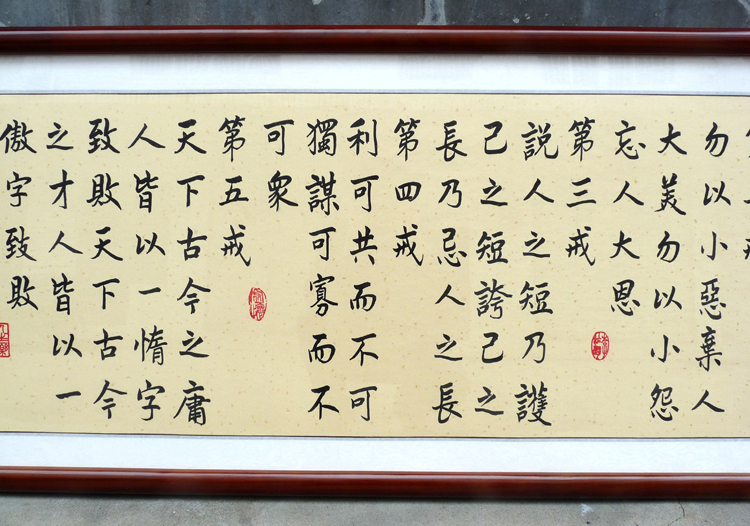 勿以小惡棄人
大美勿以小怨
忘人大恩
第三戒
説人之短乃護
己之短誇己之
長乃忌人之長
第四戒
利可共而不可
獨謀可寡而不
可衆
第五戒
天下古今之庸
人皆以一惰字
致敗天下古今
之才人皆以一
傲字致敗